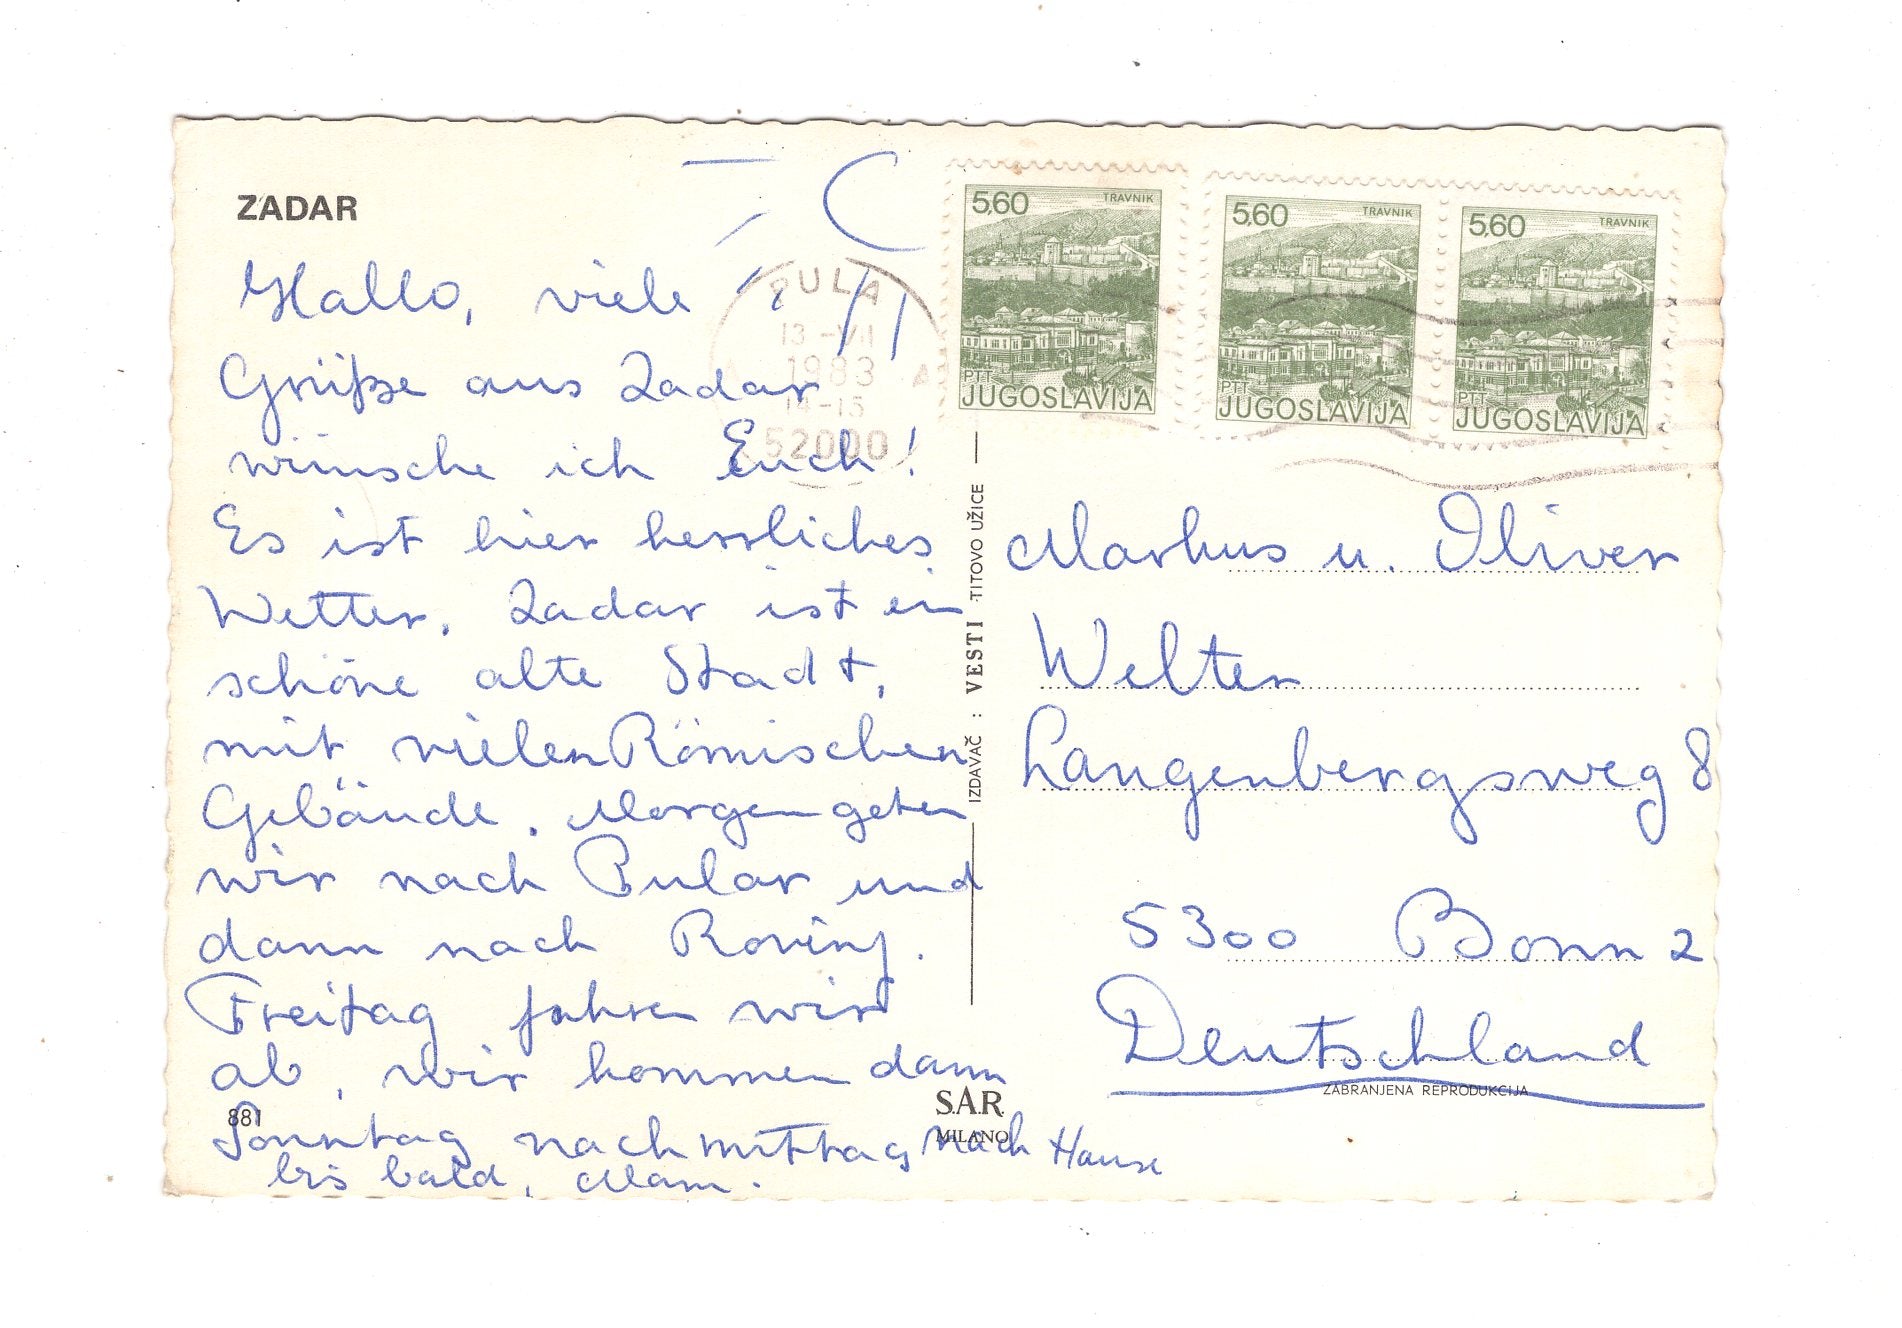 ZADAR
Hallo, viele
Grüße aus Zadar
wünsche ich Euch!
Es ist hier herrliches
Wetter. Zadar ist ein
schöne alte Stadt,
mit vielen Römischen
Gebäude. Morgen gehen
wir nach Pular und
dann nach Rovinj.
Freitag fahren wir
ab, wir kommen dann
Sonntag nachmittag nach Hause
bis bald, Mam.
881
PULA
13-VII
1983
14-15
52000
5,60 TRAVNIK
PTT
JUGOSLAVIJA
5,60 TRAVNIK
PTT
JUGOSLAVIJA
5,60 TRAVNIK
PTT
JUGOSLAVIJA
IZDAVAČ : VESTI TITOVO UŽICE
S.A.R.
MILANO
Markus u. Oliver
Welter
Langenbergsweg 8
5300 Bonn 2
Deutschland
ZABRANJENA REPRODUKCIJA